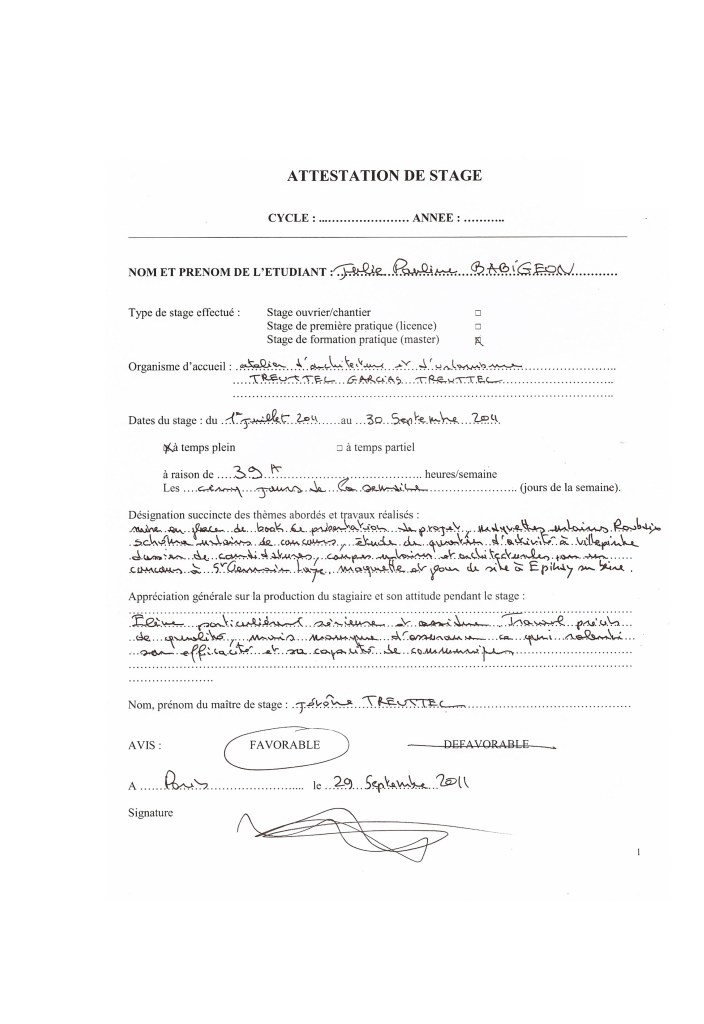 ATTESTATION DE STAGE
CYCLE : ...………………… ANNEE : ………..
NOM ET PRENOM DE L'ETUDIANT : Julie Pauline BABIGEON
Type de stage effectué : Stage ouvrier/chantier □
Stage de première pratique (licence) □
Stage de formation pratique (master) ☒
Organisme d'accueil : atelier d'architecture et d'urbanisme
TREUTTEL GARCIAS TREUTTEL
Dates du stage : du 1er juillet 2011 au 30 Septembre 2011
☒ à temps plein □ à temps partiel
à raison de 39 H heures/semaine
Les cinq jours de la semaine (jours de la semaine).
Désignation succincte des thèmes abordés et travaux réalisés :
mise en place de book de présentation de projet, maquettes urbaines Roubaix
schéma urbains de concours, étude de quartier d'activité à Villepinte
dossier de candidatures, coupes urbaines et architecturales pour un
concours à St Germain Laye, maquette et plan de site à Epinay sur Seine.
Appréciation générale sur la production du stagiaire et son attitude pendant le stage :
Elève particulièrement sérieuse et assidue Travail précis
de qualité, mais manque d'assurance ce qui ralenti
son efficacité et sa capacité de communiquer
Nom, prénom du maître de stage : Jérôme TREUTTEL
AVIS : FAVORABLE DEFAVORABLE
A Paris le 29 Septembre 2011
Signature
1